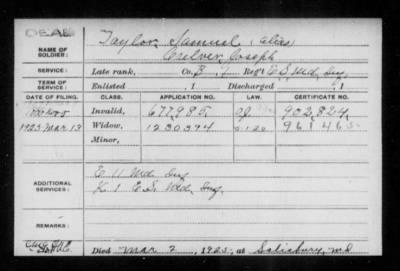 DEAD
NAME OF SOLDIER: Taylor, Samuel (alias)
Culver, Joseph
SERVICE: Late rank, Co. B, 1 Reg't E.S. Md. Inf.
TERM OF SERVICE: Enlisted , 1 Discharged , 1
DATE OF FILING. CLASS. APPLICATION NO. LAW. CERTIFICATE NO.
Invalid, 677,985. 902,824.
1925 Mar 13 Widow, 1230394 961465
Minor,
ADDITIONAL SERVICES: E 11 Md. Inf
K 1 E.S. Md. Inf.
REMARKS:
Died Mar 2, 1925, at Salisbury, Md